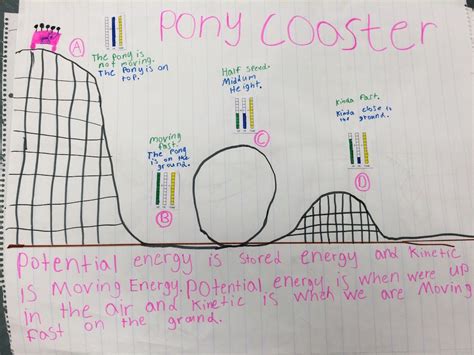 Pony Coaster
A
The pony is
not moving.
The Pony is on
top.
Half speed.
Middum
Height.
C
Kinda fast.
Kinda close to
the ground.
D
moving
fast.
The Pony
is on the
ground.
B
Potential energy is stored energy and Kinetic
is Moving Energy. Potential energy is when were up
in the air and kinetic is when we are Moving
fast on the ground.